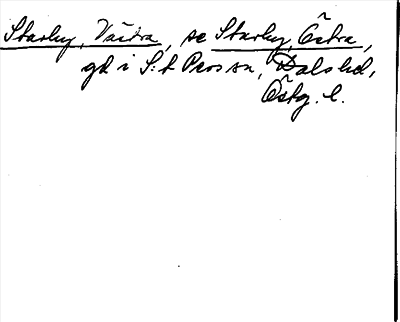 Starby, Västra, se Starby, Östra,
gd i S:t Pers sn, Dals hd,
Östg. l.